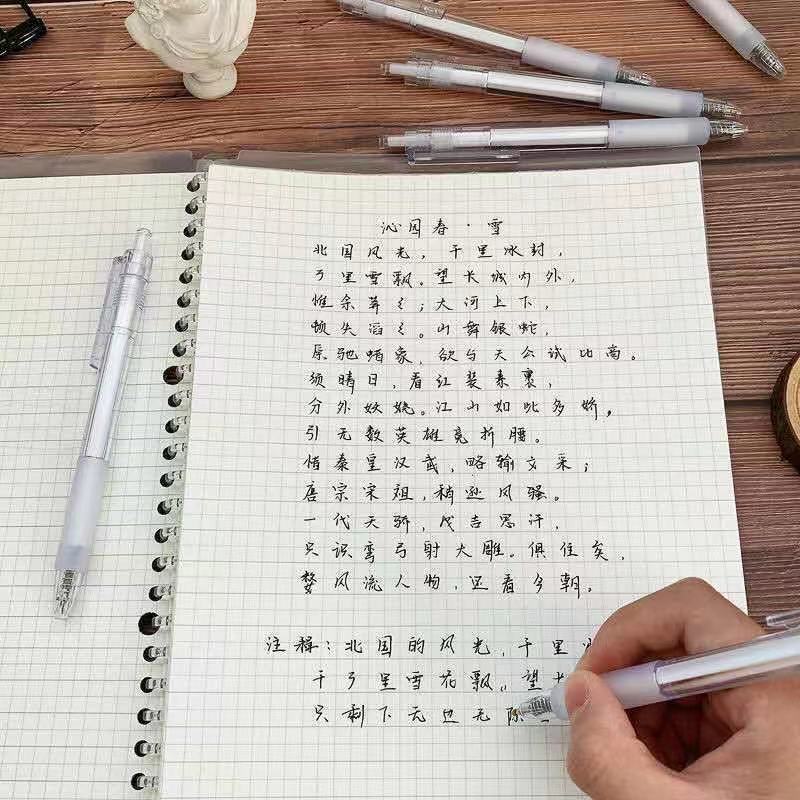 沁园春·雪
北国风光,千里冰封,
万里雪飘。望长城内外,
惟余莽々;大河上下,
顿失滔々。山舞银蛇,
原驰蜡象,欲与天公试比高。
须晴日,看红装素裹,
分外妖娆。江山如此多娇,
引无数英雄竞折腰。
惜秦皇汉武,略输文采;
唐宗宋祖,稍逊风骚。
一代天骄,成吉思汗,
只识弯弓射大雕。俱往矣,
数风流人物,还看今朝。
注释:北国的风光,千里
千万里雪花飘。望
只剩下无边无际